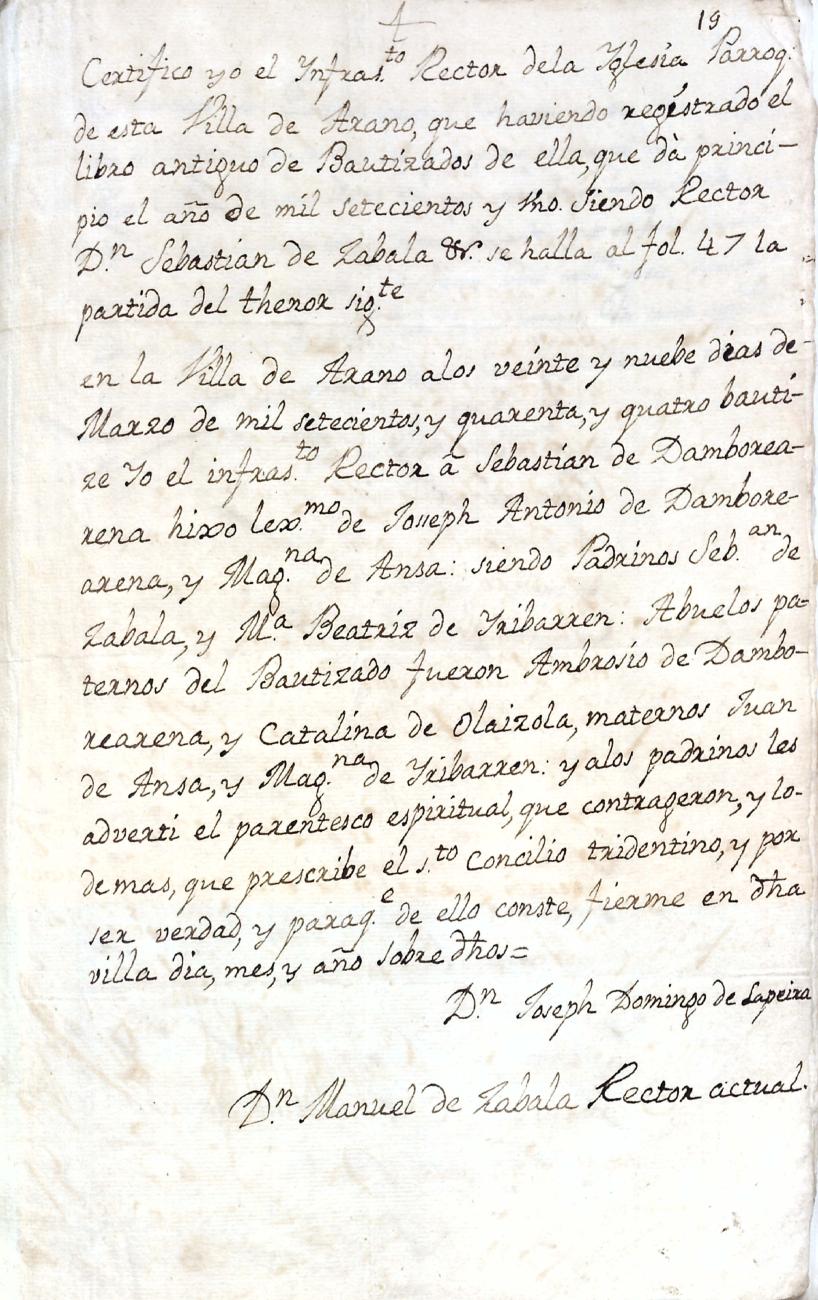 19
Certifico yo el Ynfras.to Rector dela Yglesia Parroq.
de esta Villa de Arano, que haviendo registrado el
libro antiguo de Bautizados de ella, que dà princi-
pio el año de mil setecientos y siendo Rector
D.n Sebastian de Zabala &c. se halla al fol. 47 la
partida del thenor sig.te
en la Villa de Arano alos veinte y nuebe dias de
Marzo de mil setecientos, y quarenta, y quatro bauti-
ze Yo el infras.to Rector â Sebastian de Damborea-
rena hixo lex.mo de Joseph Antonio de Dambore-
arena, y Mag.na de Ansa: siendo Padrinos Seb.an de
Zabala, y M.a Beatriz de Yribarren: Abuelos pa=
ternos del Bautizado fueron Ambrosio de Dambo-
rearena, y Catalina de Olaizola, maternos Juan
de Ansa, y Mag.na de Yribarren: y alos padrinos les
adverti el parentesco espiritual, que contrageron, y lo-
demas, que prescribe el s.to Concilio tridentino, y por
ser verdad, y paraq.e de ello conste, fierme en dha
villa dia, mes, y año sobre dhos=
D.n Joseph Domingo de Lapeira
D.n Manuel de Zabala Rector actual.